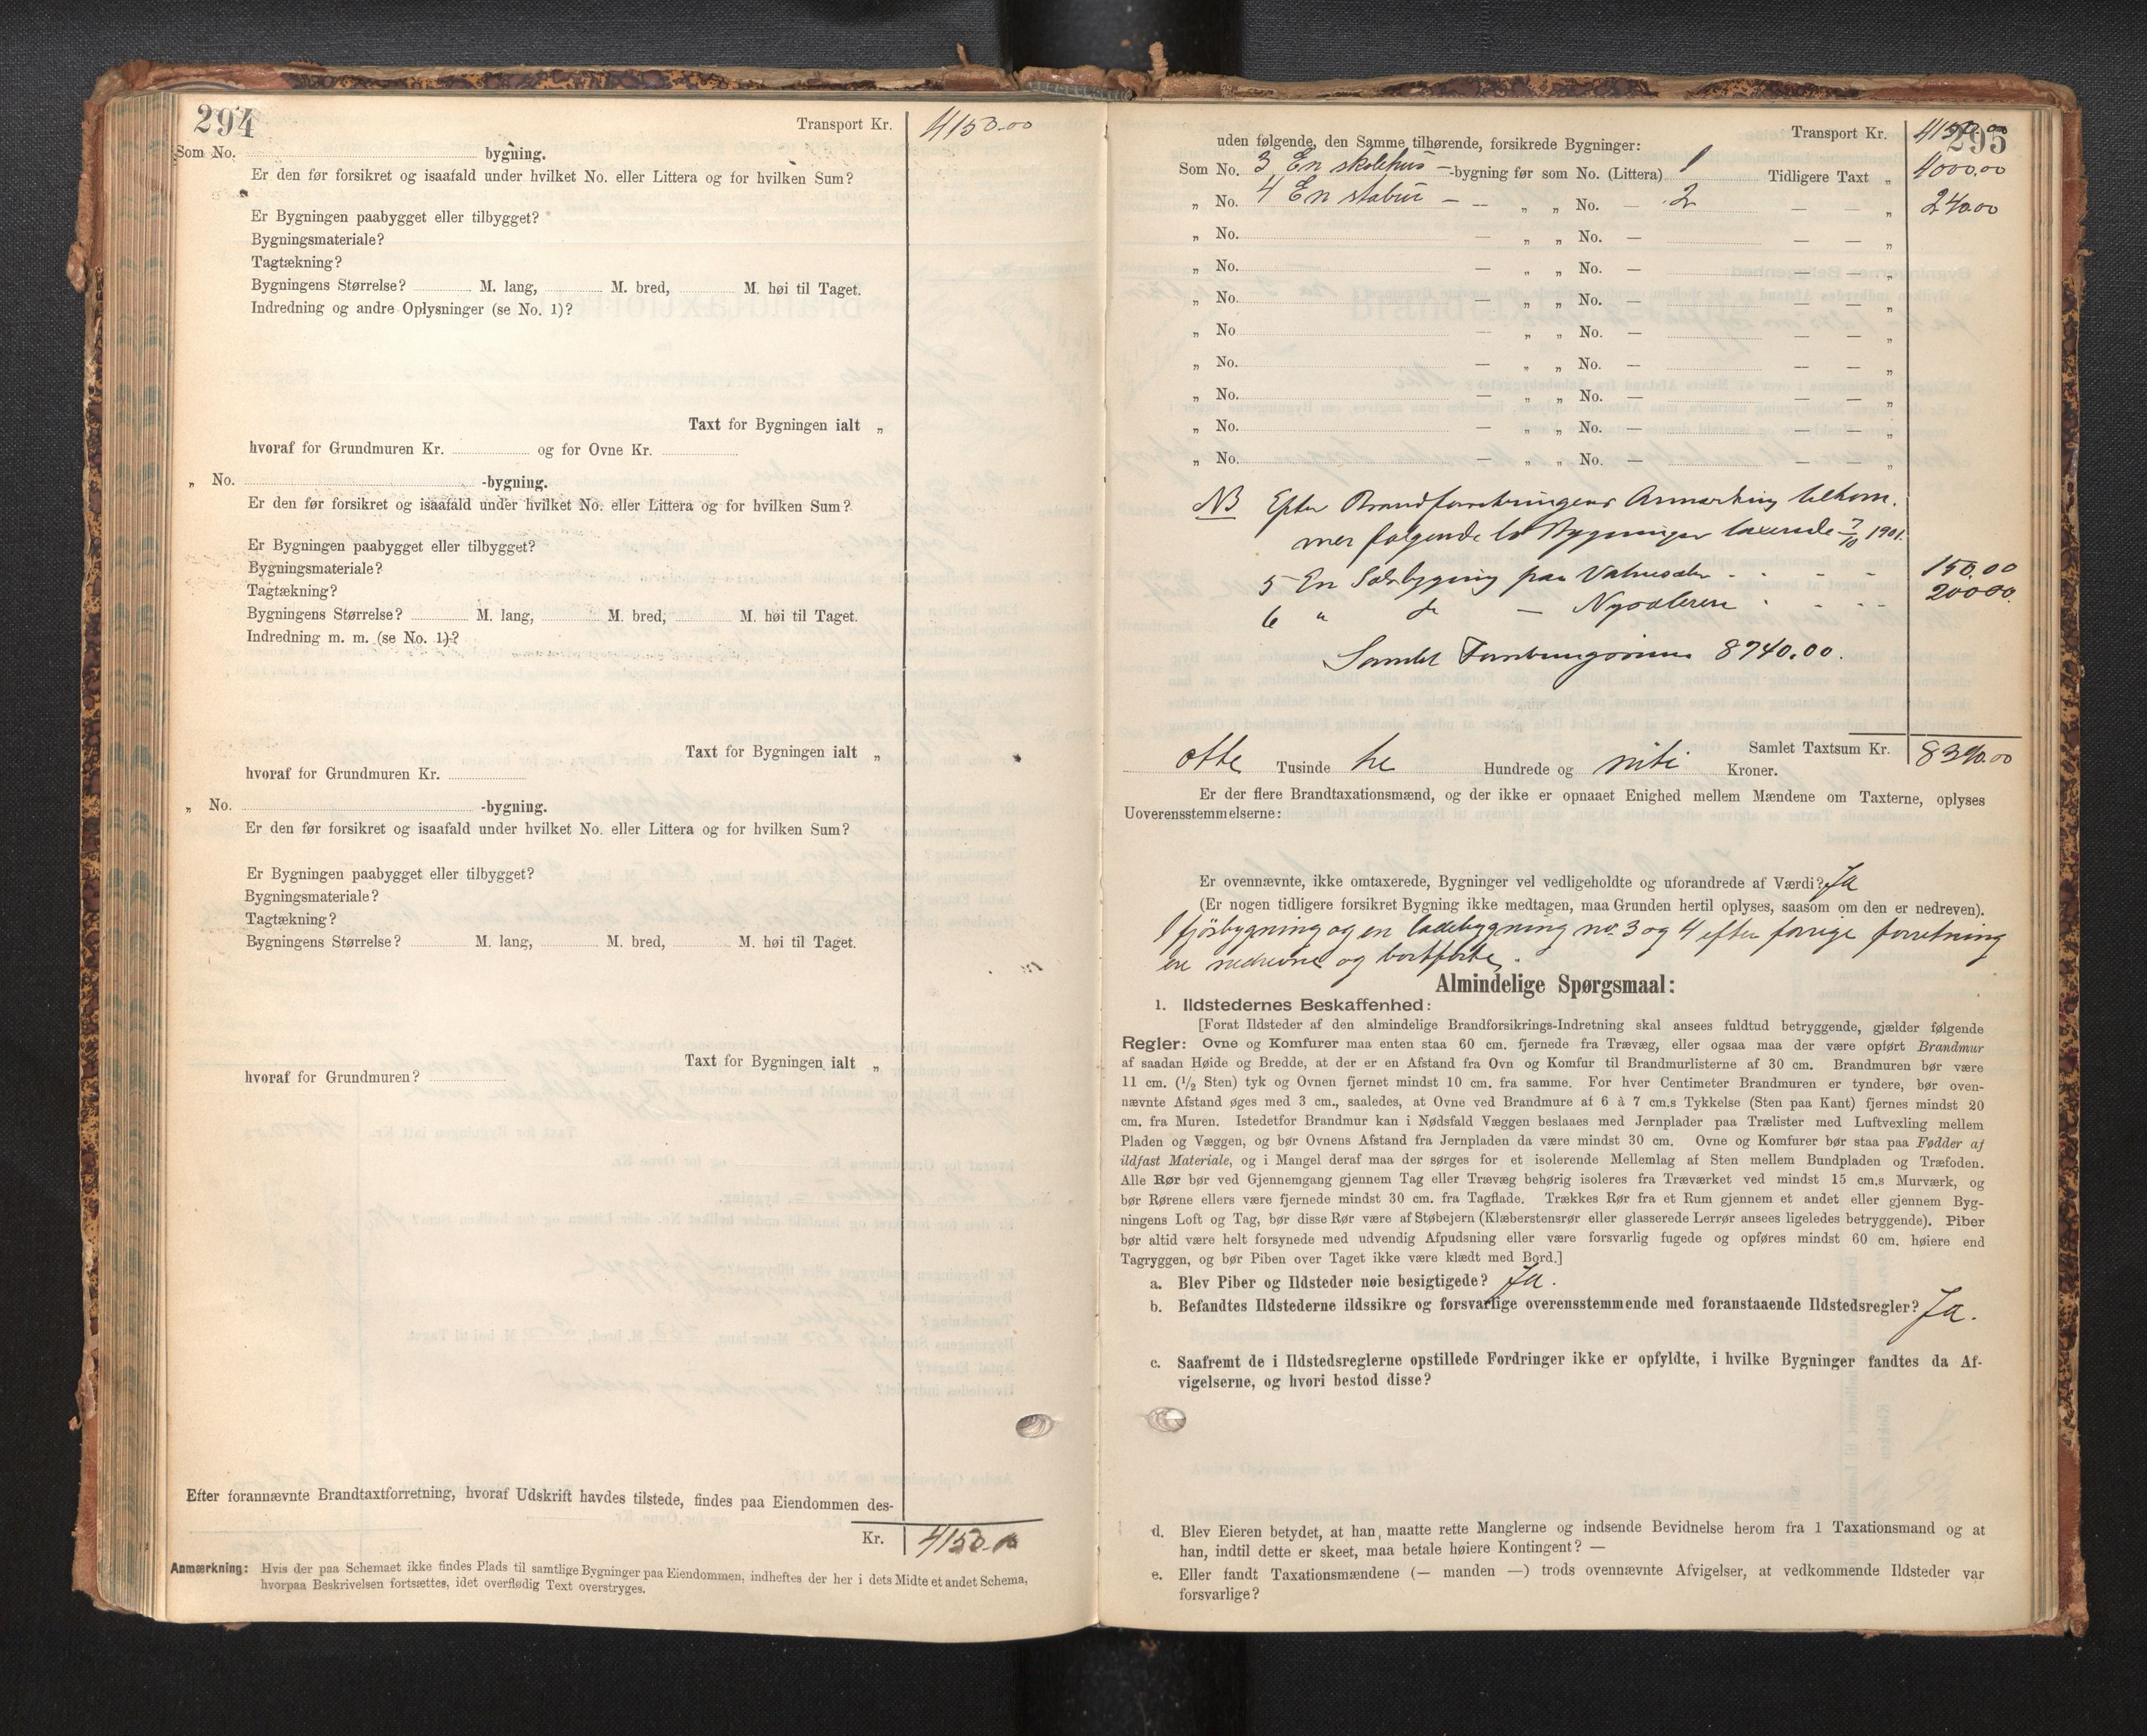 294
Transport Kr. 4150.00
Som No. bygning.
Er den før forsikret og isaafald under hvilket No. eller Littera og for hvilken Sum?
Er Bygningen paabygget eller tilbygget?
Bygningsmateriale?
Tagtækning?
Bygningens Størrelse? M. lang, M. bred, M. høi til Taget.
Indredning og andre Oplysninger (se No. 1)?
Taxt for Bygningen ialt „
hvoraf for Grundmuren Kr. og for Ovne Kr.
„ No. -bygning.
Er den før forsikret og isaafald under hvilket No. eller Littera og for hvilken Sum?
Er Bygningen paabygget eller tilbygget?
Bygningsmateriale?
Tagtækning?
Bygningens Størrelse? M. lang, M. bred, M. høi til Taget.
Indredning m. m. (se No. 1)?
Taxt for Bygningen ialt „
hvoraf for Grundmuren Kr.
„ No. -bygning.
Er den før forsikret og isaafald under hvilket No. eller Littera og for hvilken Sum?
Er Bygningen paabygget eller tilbygget?
Bygningsmateriale?
Tagtækning?
Bygningens Størrelse? M. lang, M. bred, M. høi til Taget.
Taxt for Bygningen ialt „
hvoraf for Grundmuren?
Efter forannævnte Brandtaxtforretning, hvoraf Udskrift havdes tilstede, findes paa Eiendommen des-
Kr. 4150.00
Anmærkning: Hvis der paa Schemaet ikke findes Plads til samtlige Bygninger paa Eiendommen, indheftes der her i dets Midte et andet Schema,
hvorpaa Beskrivelsen fortsættes, idet overflødig Text overstryges.
295
Transport Kr. 4150.00
uden følgende, den Samme tilhørende, forsikrede Bygninger:
Som No. 3 En skolehus -bygning før som No. (Littera) 1 Tidligere Taxt „ 4000.00
„ No. 4 En stabur — — „ „ No. — 2 — — „ 240.00
„ No. — „ „ No. — — — „
„ No. — „ „ No. — — — „
„ No. — „ „ No. — — — „
„ No — „ „ No. — — — „
„ No. — „ „ No. — — — „
„ No. — „ „ No. — — — „
„ No. — „ „ No. — — — „
„ No. — „ „ No. — — — „
NB Efter Brandforsikringens Anmærkning tilkom-
mer følgende to Bygninger taxerede 7/10 1901.
5 En Sælsbygning paa 150.00
6 „ do — 200.00
Samlet Forsikringssum 8740.00.
Samlet Taxtsum Kr. 8390.00
otte Tusinde tre Hundrede og niti Kroner.
Er der flere Brandtaxationsmænd, og der ikke er opnaaet Enighed mellem Mændene om Taxterne, oplyses
Uoverensstemmelserne:
Er ovennævnte, ikke omtaxerede, Bygninger vel vedligeholdte og uforandrede af Værdi? Ja
(Er nogen tidligere forsikret Bygning ikke medtagen, maa Grunden hertil oplyses, saasom om den er nedreven).
1 fjösbygning og en ladebygning no. 3 og 4 efter forrige forretning
ere nedrevne og bortførte.
Almindelige Spørgsmaal:
1. Ildstedernes Beskaffenhed:
[Forat Ildsteder af den almindelige Brandforsikrings-Indretning skal ansees fuldtud betryggende, gjælder følgende
Regler: Ovne og Komfurer maa enten staa 60 cm. fjernede fra Trævæg, eller ogsaa maa der være opført Brandmur
af saadan Høide og Bredde, at der er en Afstand fra Ovn og Komfur til Brandmurlisterne af 30 cm. Brandmuren bør være
11 cm. (1/2 Sten) tyk og Ovnen fjernet mindst 10 cm. fra samme. For hver Centimeter Brandmuren er tyndere, bør oven-
nævnte Afstand øges med 3 cm., saaledes, at Ovne ved Brandmure af 6 à 7 cm.s Tykkelse (Sten paa Kant) fjernes mindst 20
cm. fra Muren. Istedetfor Brandmur kan i Nødsfald Væggen beslaaes med Jernplader paa Trælister med Luftvexling mellem
Pladen og Væggen, og bør Ovnens Afstand fra Jernpladen da være mindst 30 cm. Ovne og Komfurer bør staa paa Fødder af
ildfast Materiale, og i Mangel deraf maa der sørges for et isolerende Mellemlag af Sten mellem Bundpladen og Træfoden.
Alle Rør bør ved Gjennemgang gjennem Tag eller Trævæg behørig isoleres fra Træværket ved mindst 15 cm.s Murværk, og
bør Rørene ellers være fjernede mindst 30 cm. fra Tagflade. Trækkes Rør fra et Rum gjennem et andet eller gjennem Byg-
ningens Loft og Tag, bør disse Rør være af Støbejern (Klæberstensrør eller glasserede Lerrør ansees ligeledes betryggende). Piber
bør altid være helt forsynede med udvendig Afpudsning eller være forsvarlig fugede og opføres mindst 60 cm. høiere end
Tagryggen, og bør Piben over Taget ikke være klædt med Bord.]
a. Blev Piber og Ildsteder nøie besigtigede? Ja.
b. Befandtes Ildstederne ildssikre og forsvarlige overensstemmende med foranstaaende Ildstedsregler? Ja.
c. Saafremt de i Ildstedsreglerne opstillede Fordringer ikke er opfyldte, i hvilke Bygninger fandtes da Af-
vigelserne, og hvori bestod disse?
d. Blev Eieren betydet, at han maatte rette Manglerne og indsende Bevidnelse herom fra 1 Taxationsmand og at
han, indtil dette er skeet, maa betale høiere Kontingent? —
e. Eller fandt Taxationsmændene (— manden —) trods ovennævnte Afvigelser, at vedkommende Ildsteder var
forsvarlige?